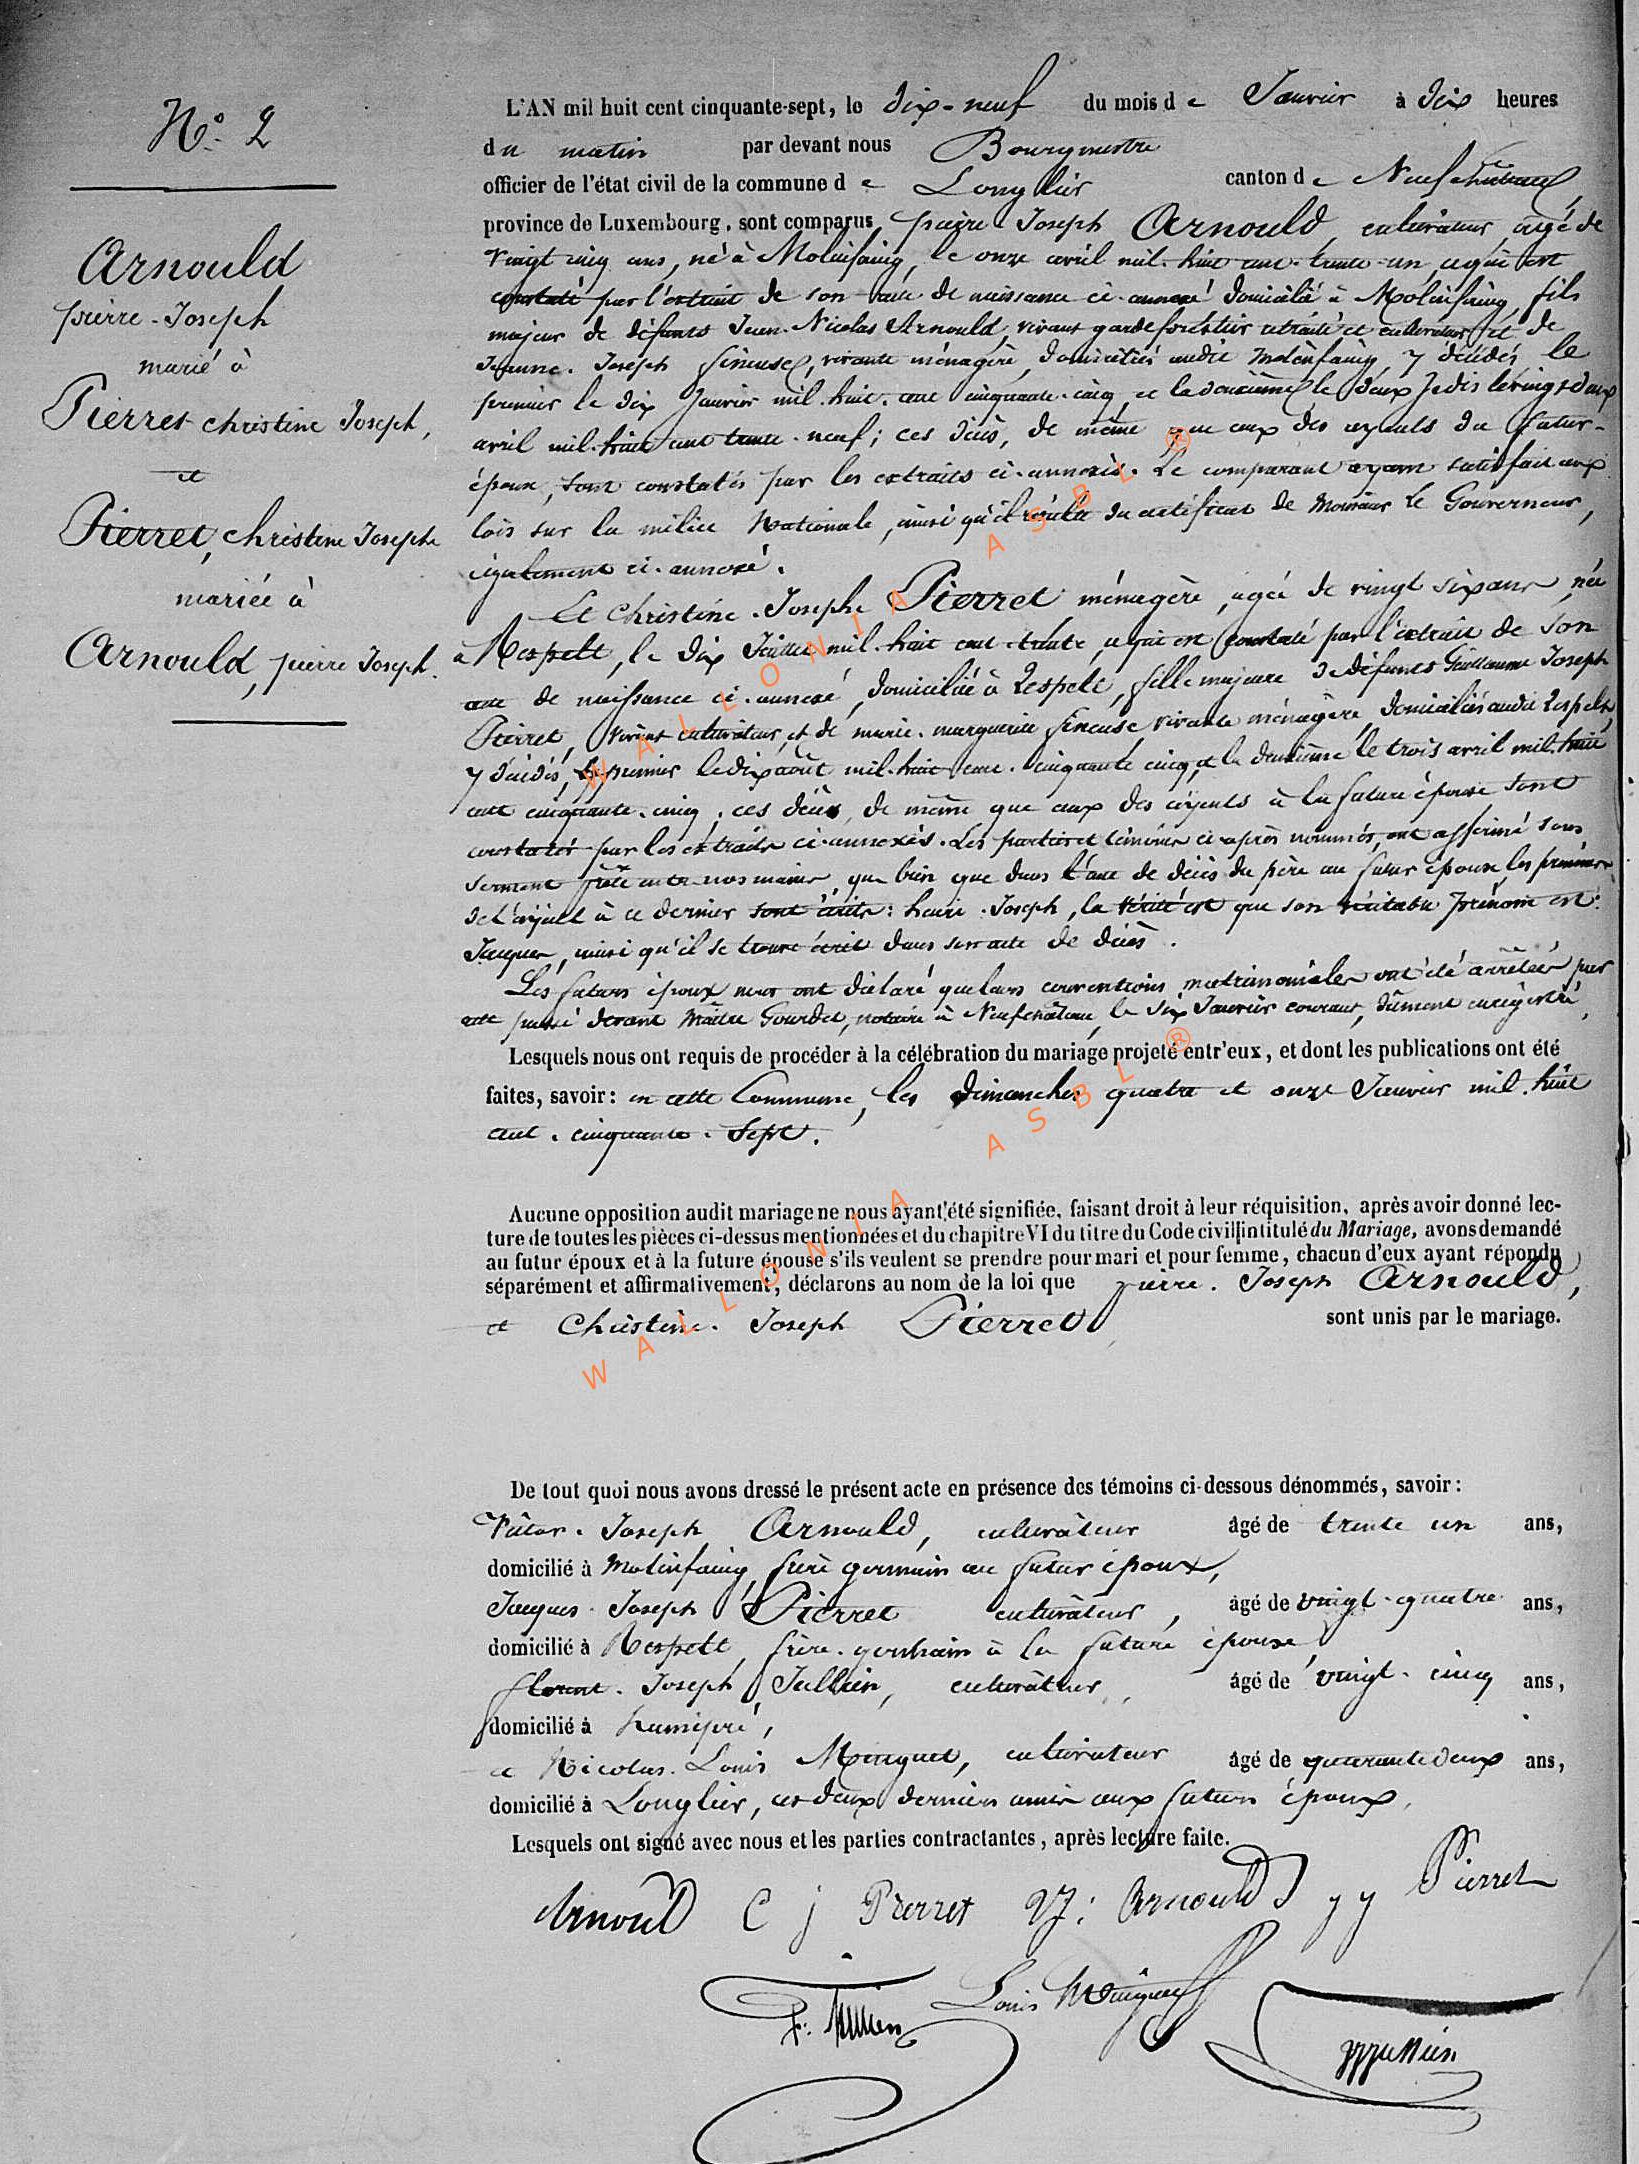 N.° 2
Arnould
pierre-Joseph
marié à
Pierret christine Joseph,
et
Pierret, christine Josephe
mariée à
Arnould, pierre Joseph.
L'AN mil huit cent cinquante-sept, le dix-neuf du mois de Janvier à dix heures
du matin par devant nous Bourgmestre
officier de l'état civil de la commune de Longlier canton de Neufchâteau,
province de Luxembourg, sont comparus pierre Joseph Arnould, cultivateur, âgé de
vingt cinq ans, né à Molinfaing, le onze avril mil-huit cent-trente-un, ce qui est
constaté par l'extrait de son acte de naissance ci-annexé domicilié à Molinfaing, fils
majeur de défunts Jean-Nicolas Arnould, vivant garde forestier retraité et cultivateur, et de
Jeanne-Joseph fineuse, vivante ménagère, domiciliés audit Molinfaing, y décédés le
premier le dix Janvier mil-huit-cent cinquante-cinq, et la deuxième le vingt deux
avril mil-huit cent trente-neuf; ces décès, de même que ceux des ayeuls du futur-
époux, sont constatés par les extraits ci-annexés. Le comparant ayant satisfait aux
lois sur la milice Nationale, ainsi qu'il résulte du certificat de Monsieur le Gouverneur,
également ci-annexé.
Et christine-Josephe Pierret, ménagère, agée de vingt six ans, née
à Respelt, le dix Juillet mil-huit cent-trente, ce qui est constaté par l'extrait de son
acte de naissance ci-annexé, domiciliée à Respelt, fille majeure de défunts Guillaume Joseph
Pierret, vivant cultivateur, et de marie-marguerite fineuse vivante ménagère, domiciliés audit Respelt,
y décédés, le premier le dix août mil-huit cent-cinquante cinq, et la deuxième le trois avril mil-huit
cent cinquante-cinq; ces décès, de même que ceux des ayeuls à la future épouse sont
constatés par les extraits ci-annexés. Les parties et témoins ci-après nommés, ont affirmé sous
serment prêté entre nos mains que bien que dans l'acte de décès du père au futur époux, les prénoms
de l'ayeul à ce dernier sont écrits: henri-Joseph, la vérité est que son véritable prénom est:
Jacques, ainsi qu'il se trouve écrit dans son acte de décès.
Les futurs époux nous ont déclaré que leurs conventions matrimoniales ont été arrêtées par
acte passé devant Maître Gourdet, notaire à Neufchâteau, le six Janvier courant, dûment enregistré,
Lesquels nous ont requis de procéder à la célébration du mariage projeté entr'eux, et dont les publications ont été
faites, savoir: en cette Commune, les dimanches quatre et onze Janvier mil-huit
cent-cinquante-sept.
Aucune opposition audit mariage ne nous ayant été signifiée, faisant droit à leur réquisition, après avoir donné lec-
ture de toutes les pièces ci-dessus mentionnées et du chapitre VI du titre du Code civil intitulé du Mariage, avons demandé
au futur époux et à la future épouse s'ils veulent se prendre pour mari et pour femme, chacun d'eux ayant répondu
séparément et affirmativement, déclarons au nom de la loi que pierre-Joseph Arnould,
et Christine-Joseph Pierret sont unis par le mariage.
De tout quoi nous avons dressé le présent acte en présence des témoins ci-dessous dénommés, savoir:
Victor-Joseph Arnould, cultivateur âgé de trente un ans,
domicilié à Molinfaing, frère germain au futur époux,
Jacques-Joseph Pierret cultivateur, âgé de vingt-quatre ans,
domicilié à Respelt, frère-germain à la future épouse,
florent-Joseph Jullien, cultivateur, âgé de vingt-cinq ans,
domicilié à hamipré,
et Nicolas-Louis Minguet, cultivateur âgé de quarante deux ans,
domicilié à Longlier, ces deux derniers amis aux futurs époux.
Lesquels ont signé avec nous et les parties contractantes, après lecture faite.
Arnould C j Pierret VJ: Arnould J J Pierret
F: Jullien Louis Minguet
WALLONIA ASBL ®
WALLONIA ASBL ®